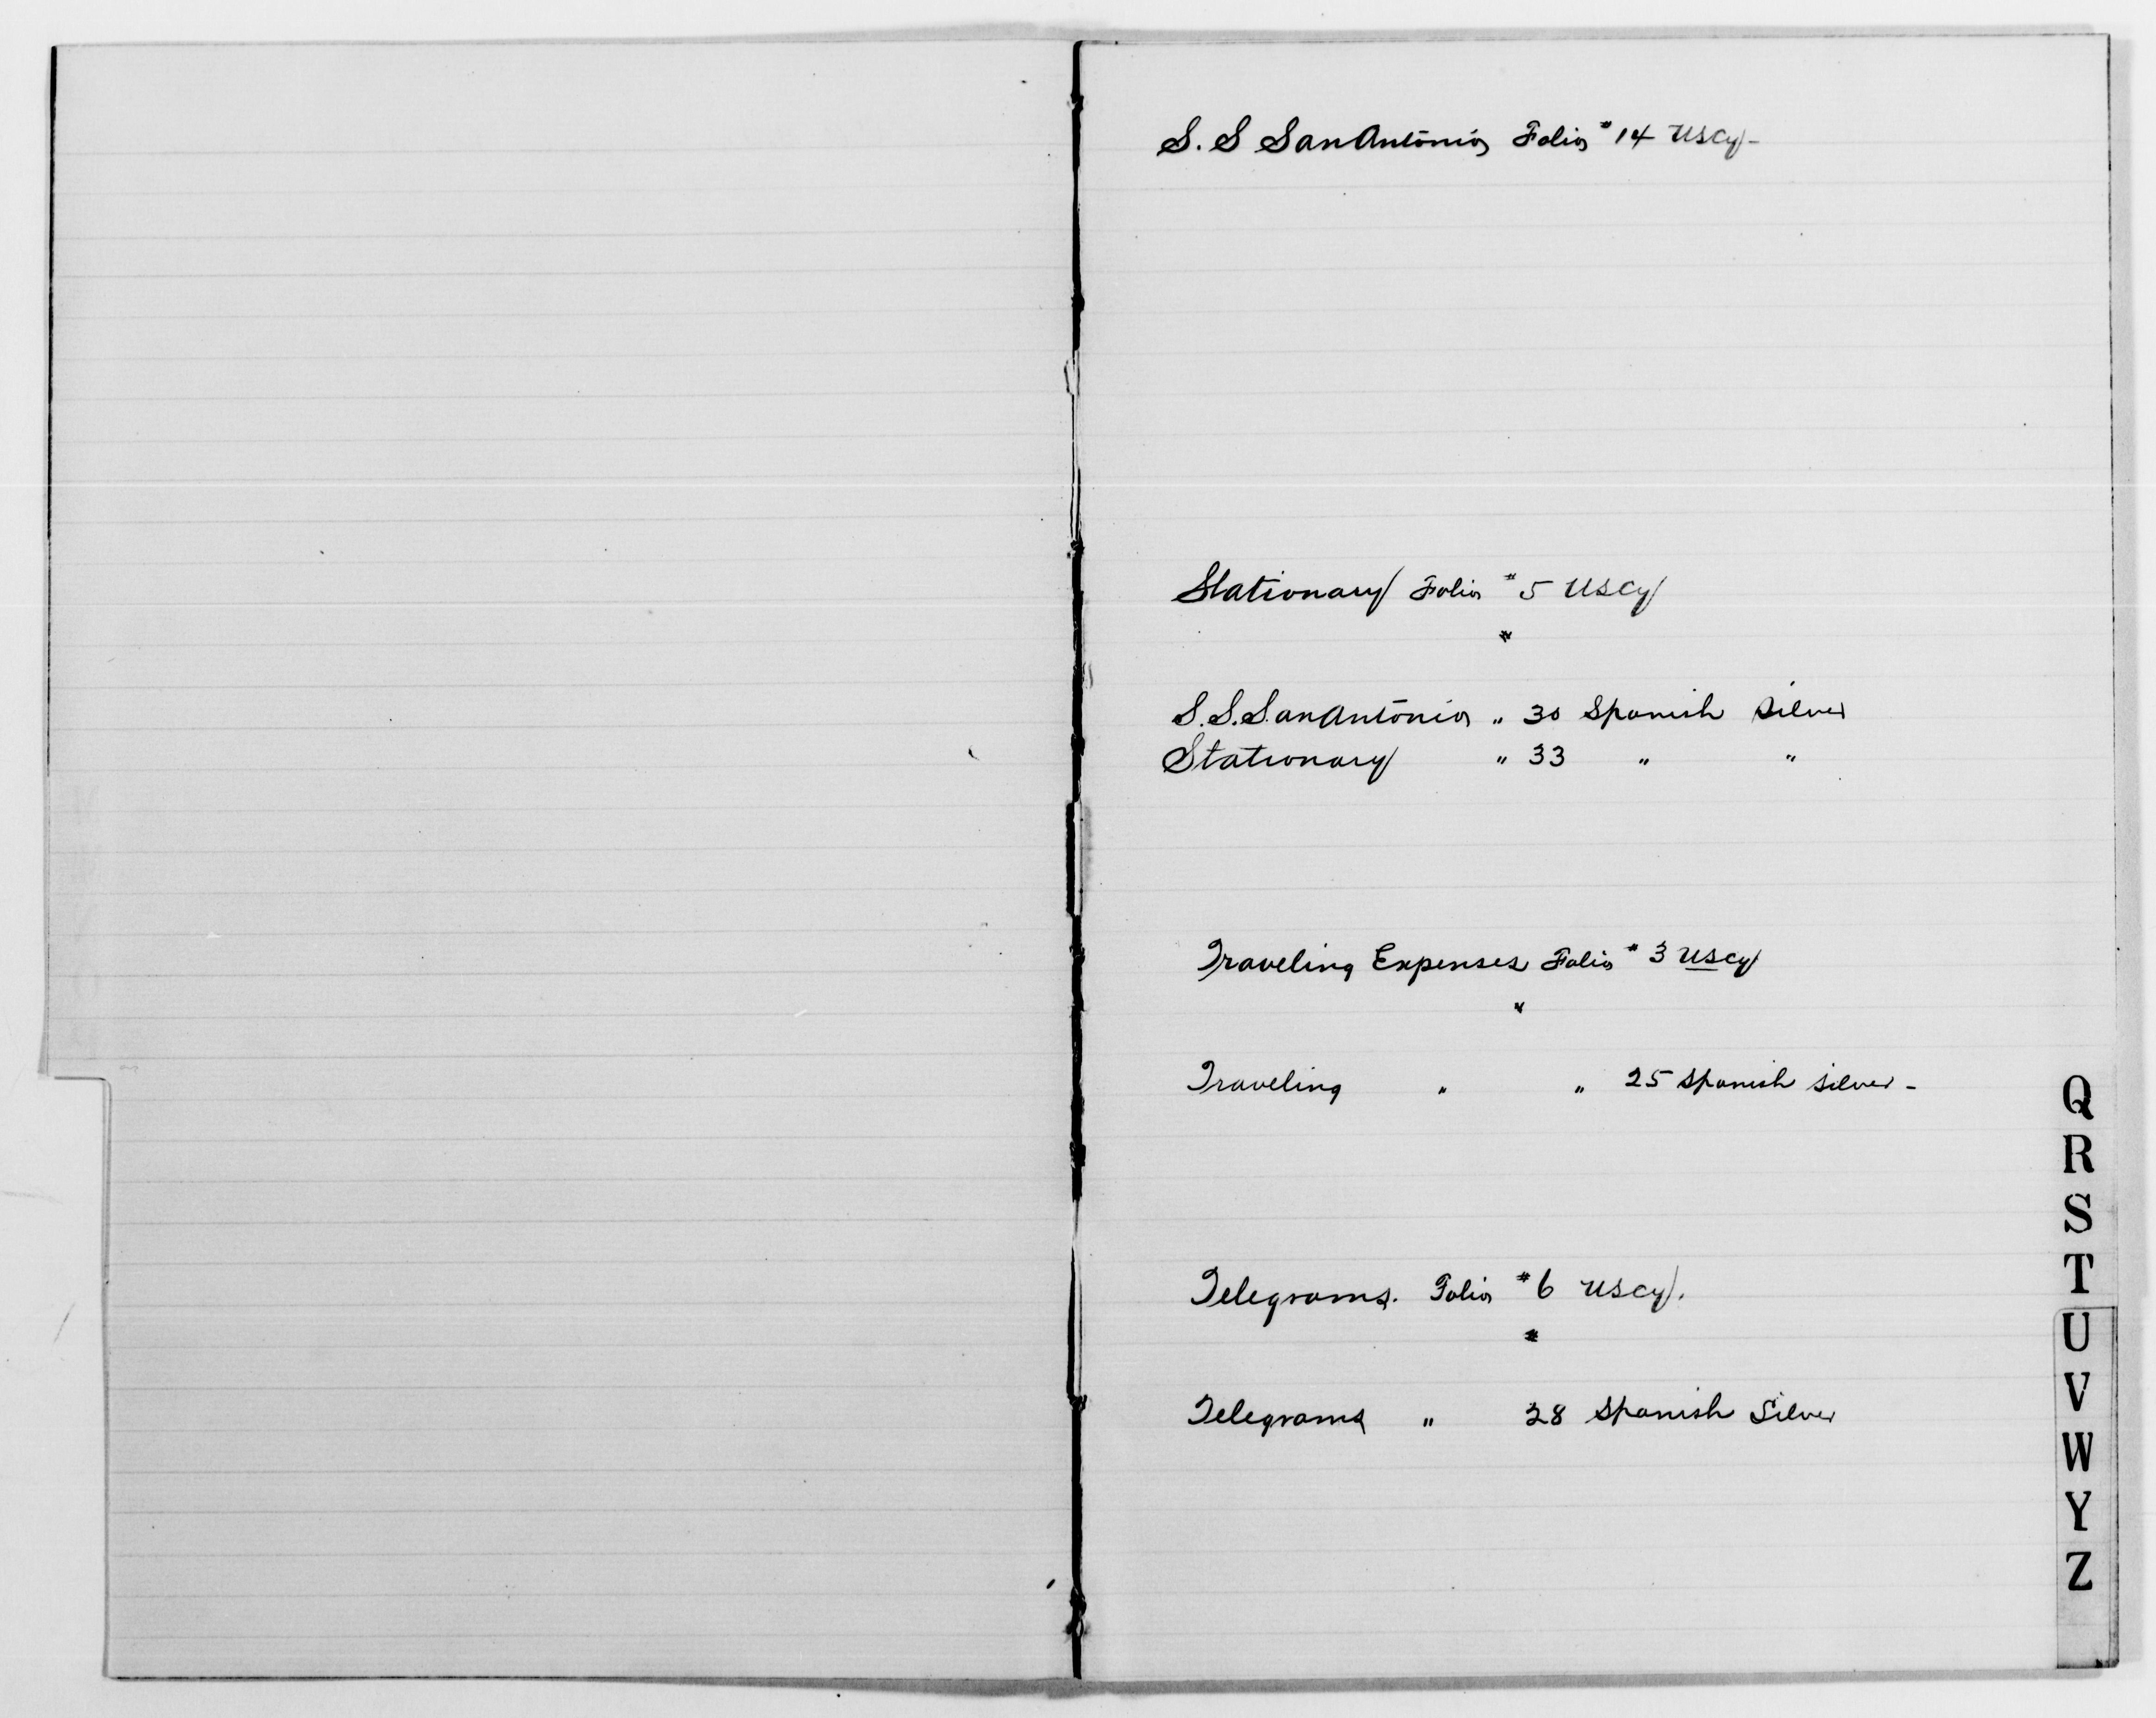 S. S San Antonio Folio # 14 USCy-
Stationary Folio # 5 USCy
#
S.S. San Antonio " 30 Spanish Silver
Stationary " 33 " "
Traveling Expenses Folio # 3 USCy
#
Traveling " " 25 Spanish silver -
Telegrams. Folio # 6 USCy.
#
Telegrams " 28 Spanish Silver
Q
R
S
T
U
V
W
Y
Z